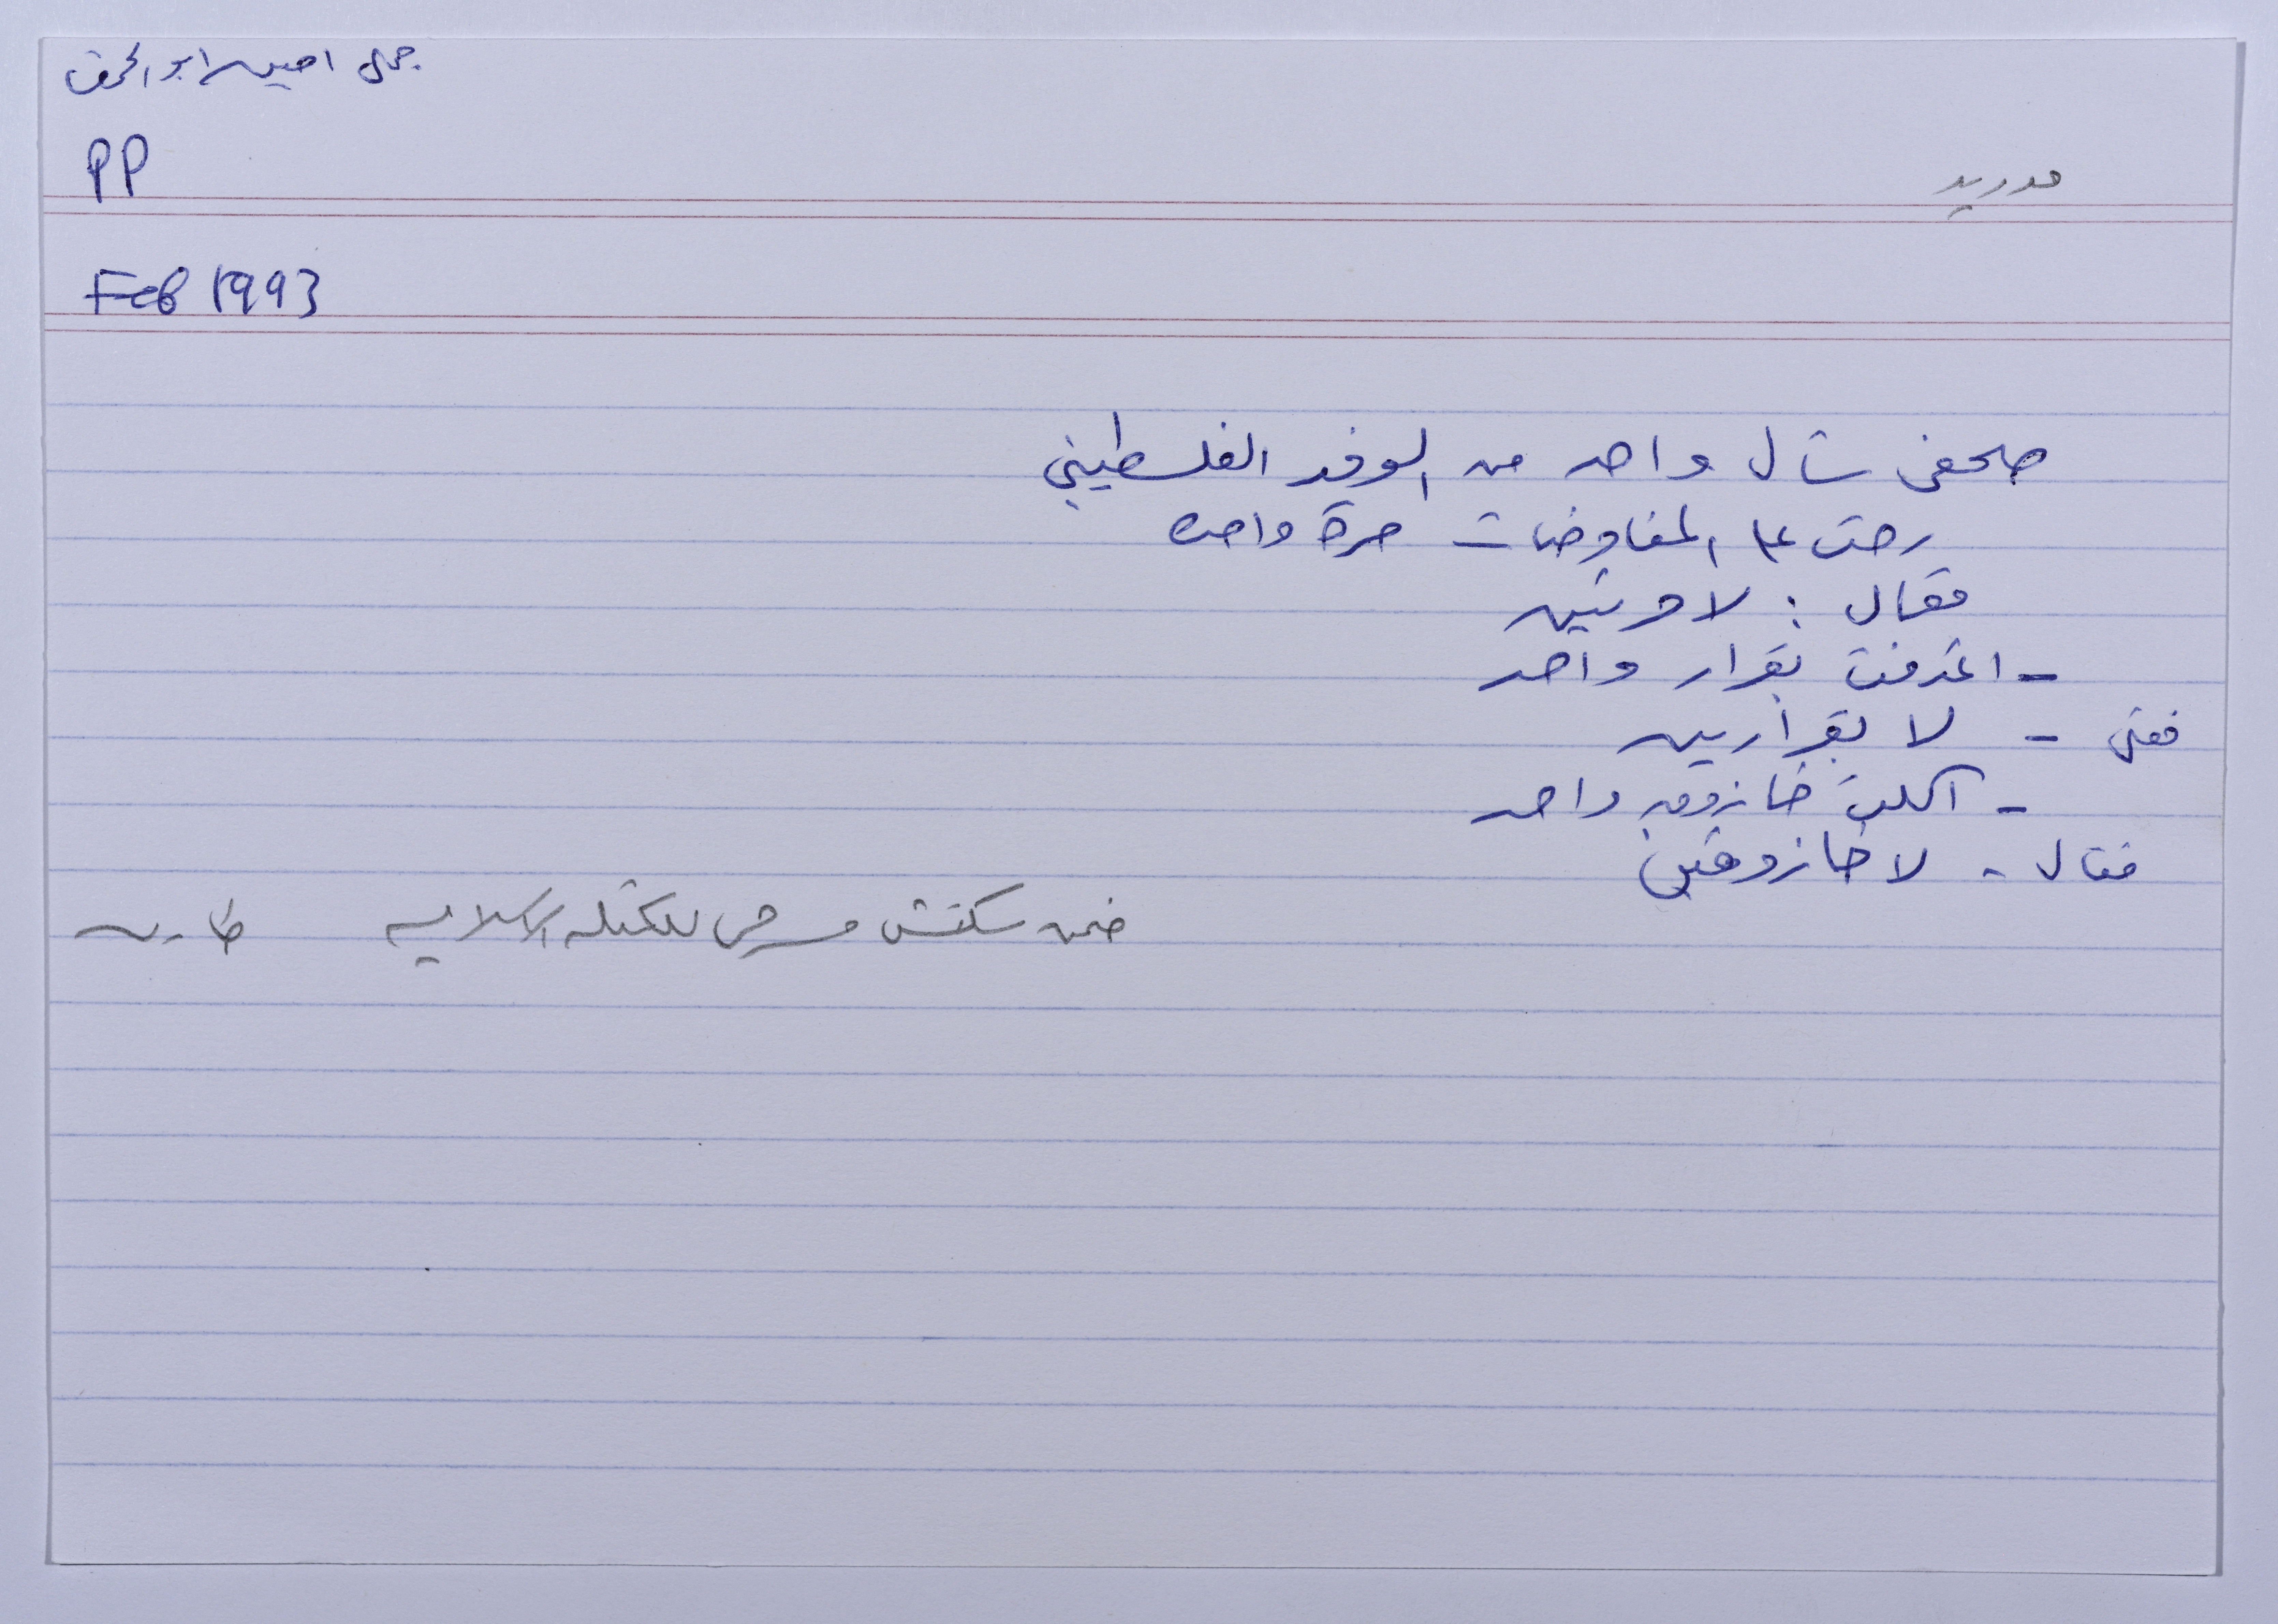 جمال امين ابو الحمص
PP
مدريد
Feb 1993
صحفي سأل واحد من الوفد الفلسطيني
رحت على المفاوضات مرة واحده
فقال : لا مرتين
- اعترفت بقرار واحد
فقال - لا بقرارين
- اكلت خازوق واحد
فقال - لا خازوقين
ضمن سكتش مسرحي للكتله الاسلاميه